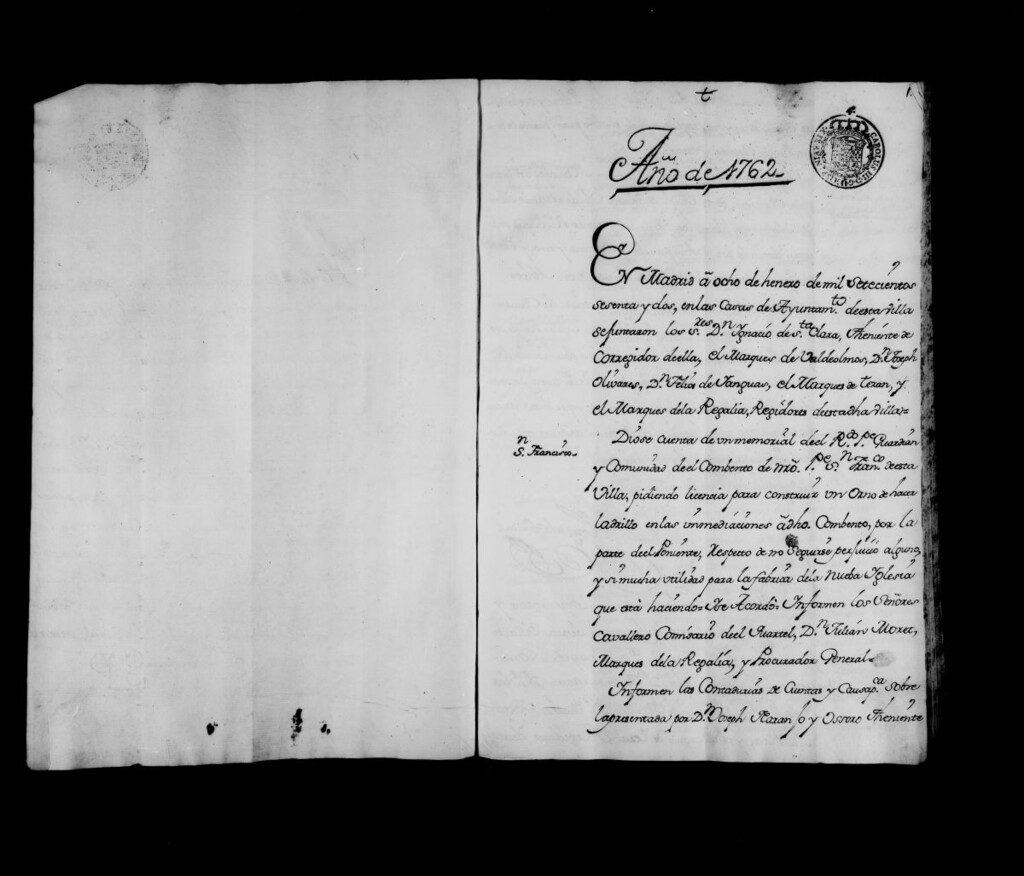 t
1.
Año de 1762
CAROLUS III D. G.
En Madrid à ocho de henero de mil Setecientos
sesenta y dos, en las Casas de Ayuntam.to de esta Villa
se juntaron los S.res D.n Ygnacio de S.ta Clara, Theniente de
Corregidor de ella, el Marques de Valdeolmos, D.n Joseph
Olivares, D.n Felix de Yanguas, el Marques de teran, y
el Marques de la Regalia, Regidores de esta dha Villa=
S.n Francisco..
Diose cuenta de vn memorial de el R.do P.e Guardian
y Comunidad de el Combento de nrō. P.e S.n Fran.co de esta
Villa, pidiendo licencia para construir vn Orno de hacer
ladrillo en las inmediaciones à dho. Combento, por la
parte de el Poniente, respecto de no seguirse perjuicio alguno,
y si mucha vtilidad para la fabrica de la nueba Yglesia
que està haciendo= Se Acordò= Informen los Señores
Cavallero Comisario de el Quartel, D.n Julian Moret,
Marques de la Regalia, y Procurador General=
Informen las Contadurias de Cuentas y Causap.ca Sobre
la presentada por D.n Joseph Naranjo y Ossore Theniente